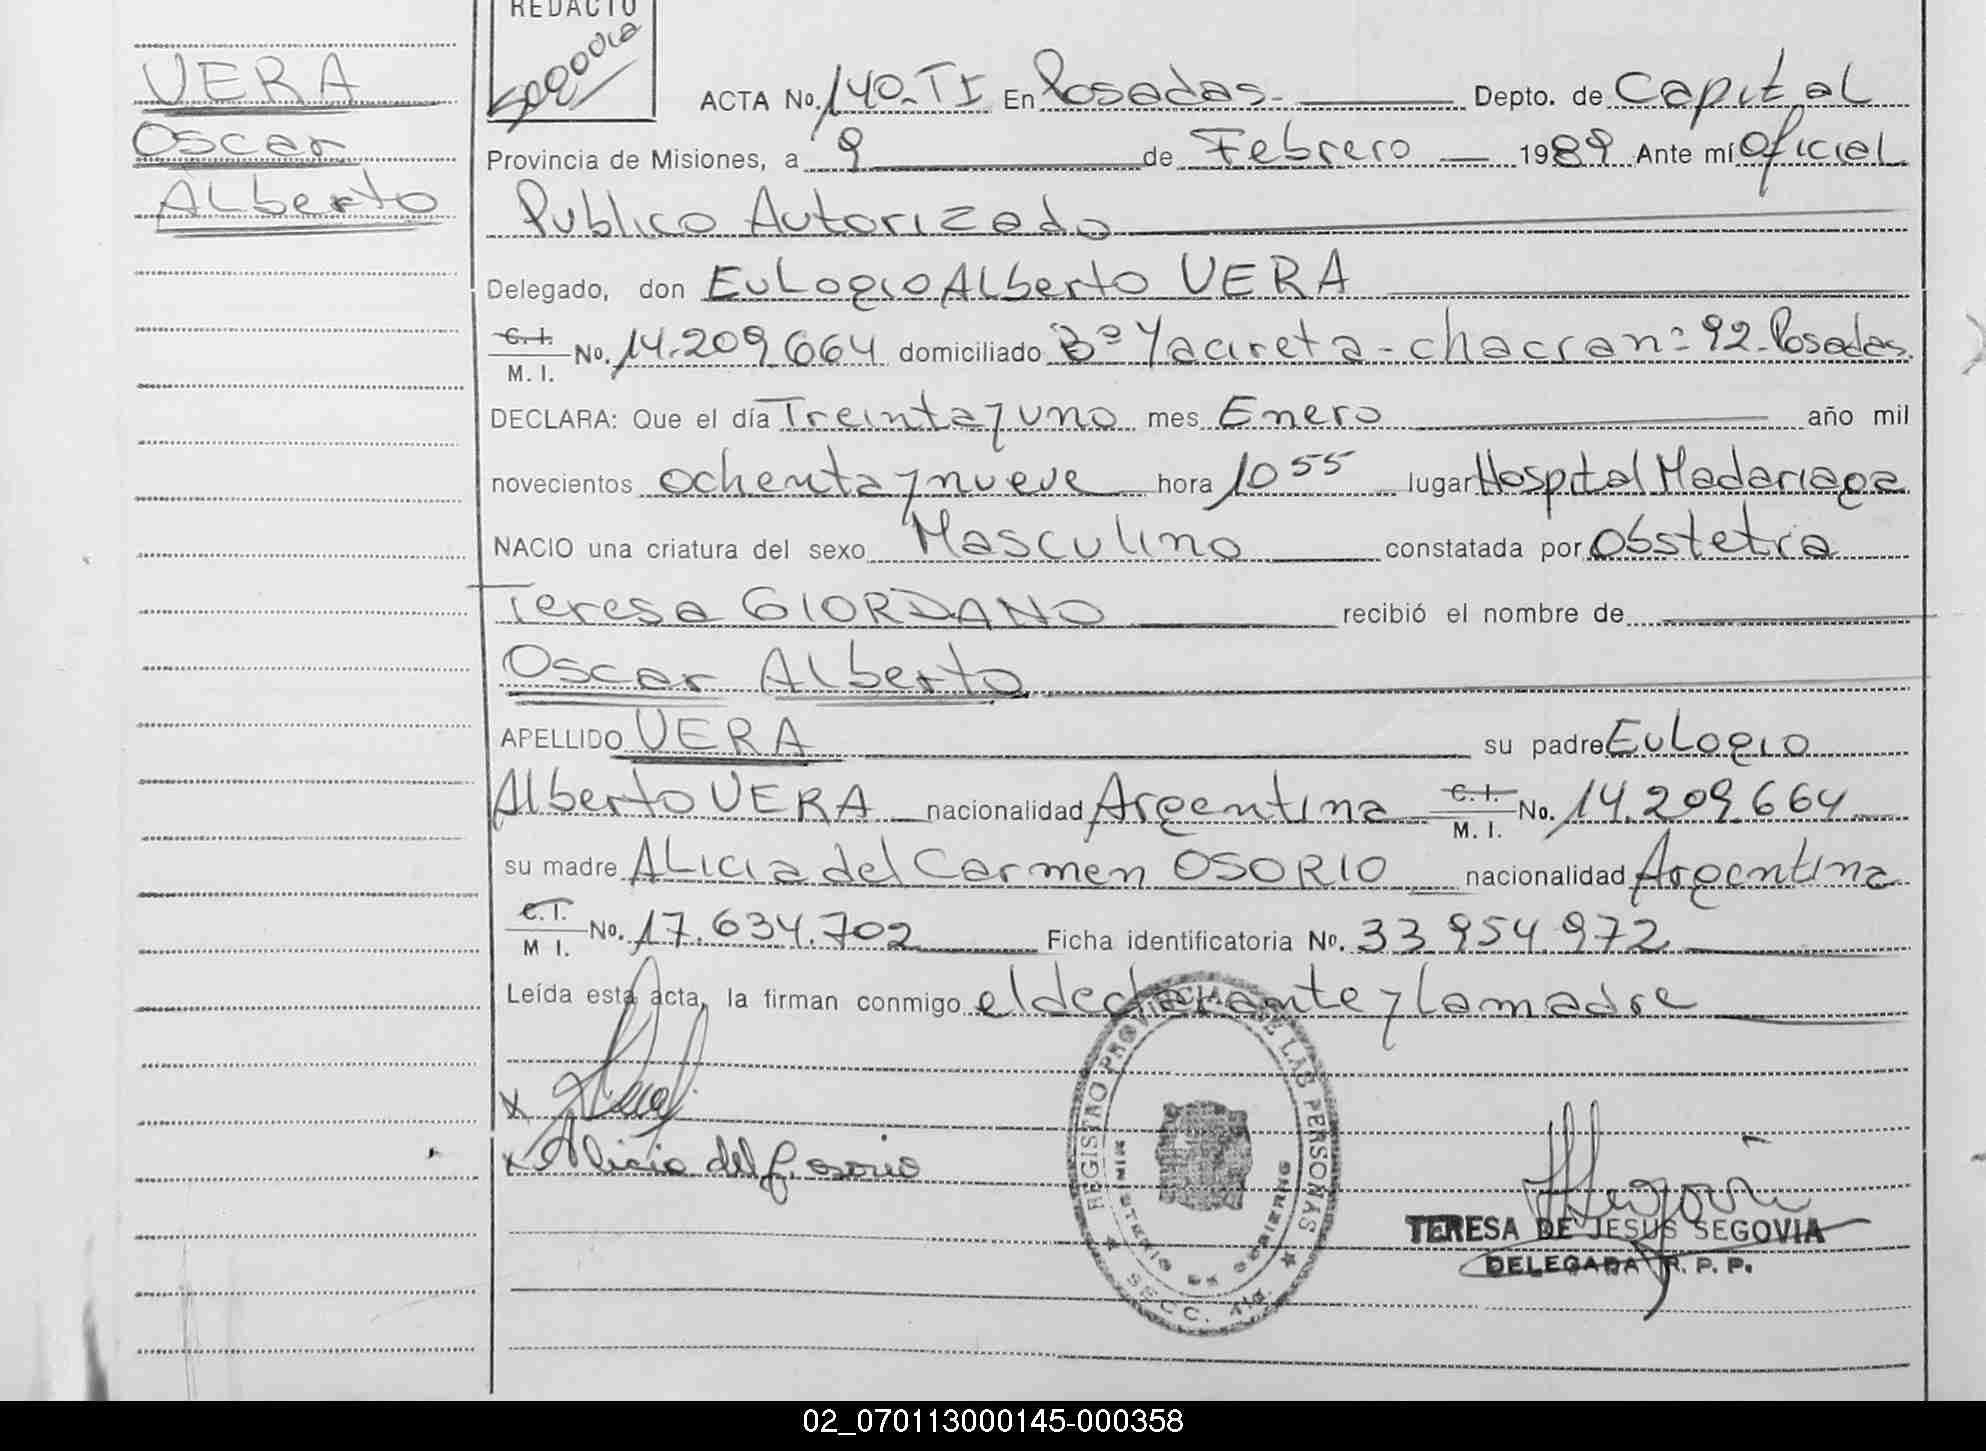 REDACTO
Segovia
VERA
Oscar
Alberto
ACTA No. 140-TI En Posadas- Depto. de Capital
Provincia de Misiones, a 9 de Febrero 1989 Ante mí Oficial
Publico Autorizado
Delegado, don Eulogio Alberto VERA
C. I. / M. I. No. 14.209.664 domiciliado Bº Yacireta - chacra nº 92-Posadas.
DECLARA: Que el día Treinta y uno mes Enero año mil
novecientos ochenta y nueve hora 10 55 lugar Hospital Madariaga
NACIO una criatura del sexo Masculino constatada por Obstetra
Teresa GIORDANO recibió el nombre de
Oscar Alberto
APELLIDO VERA su padre Eulogio
Alberto VERA nacionalidad Argentina C. I. / M. I. No. 14.209.664
su madre Alicia del Carmen OSORIO nacionalidad Argentina
C. I. / M I. No. 17.634.702 Ficha identificatoria No. 33 954 972
Leída esta acta, la firman conmigo el declarante y la madre
x
x Alicia del C. osorio
REGISTRO PROVINCIAL DE LAS PERSONAS
MINISTERIO DE GOBIERNO
SECC.
TERESA DE JESUS SEGOVIA
DELEGADA R. P. P.
02_070113000145-000358